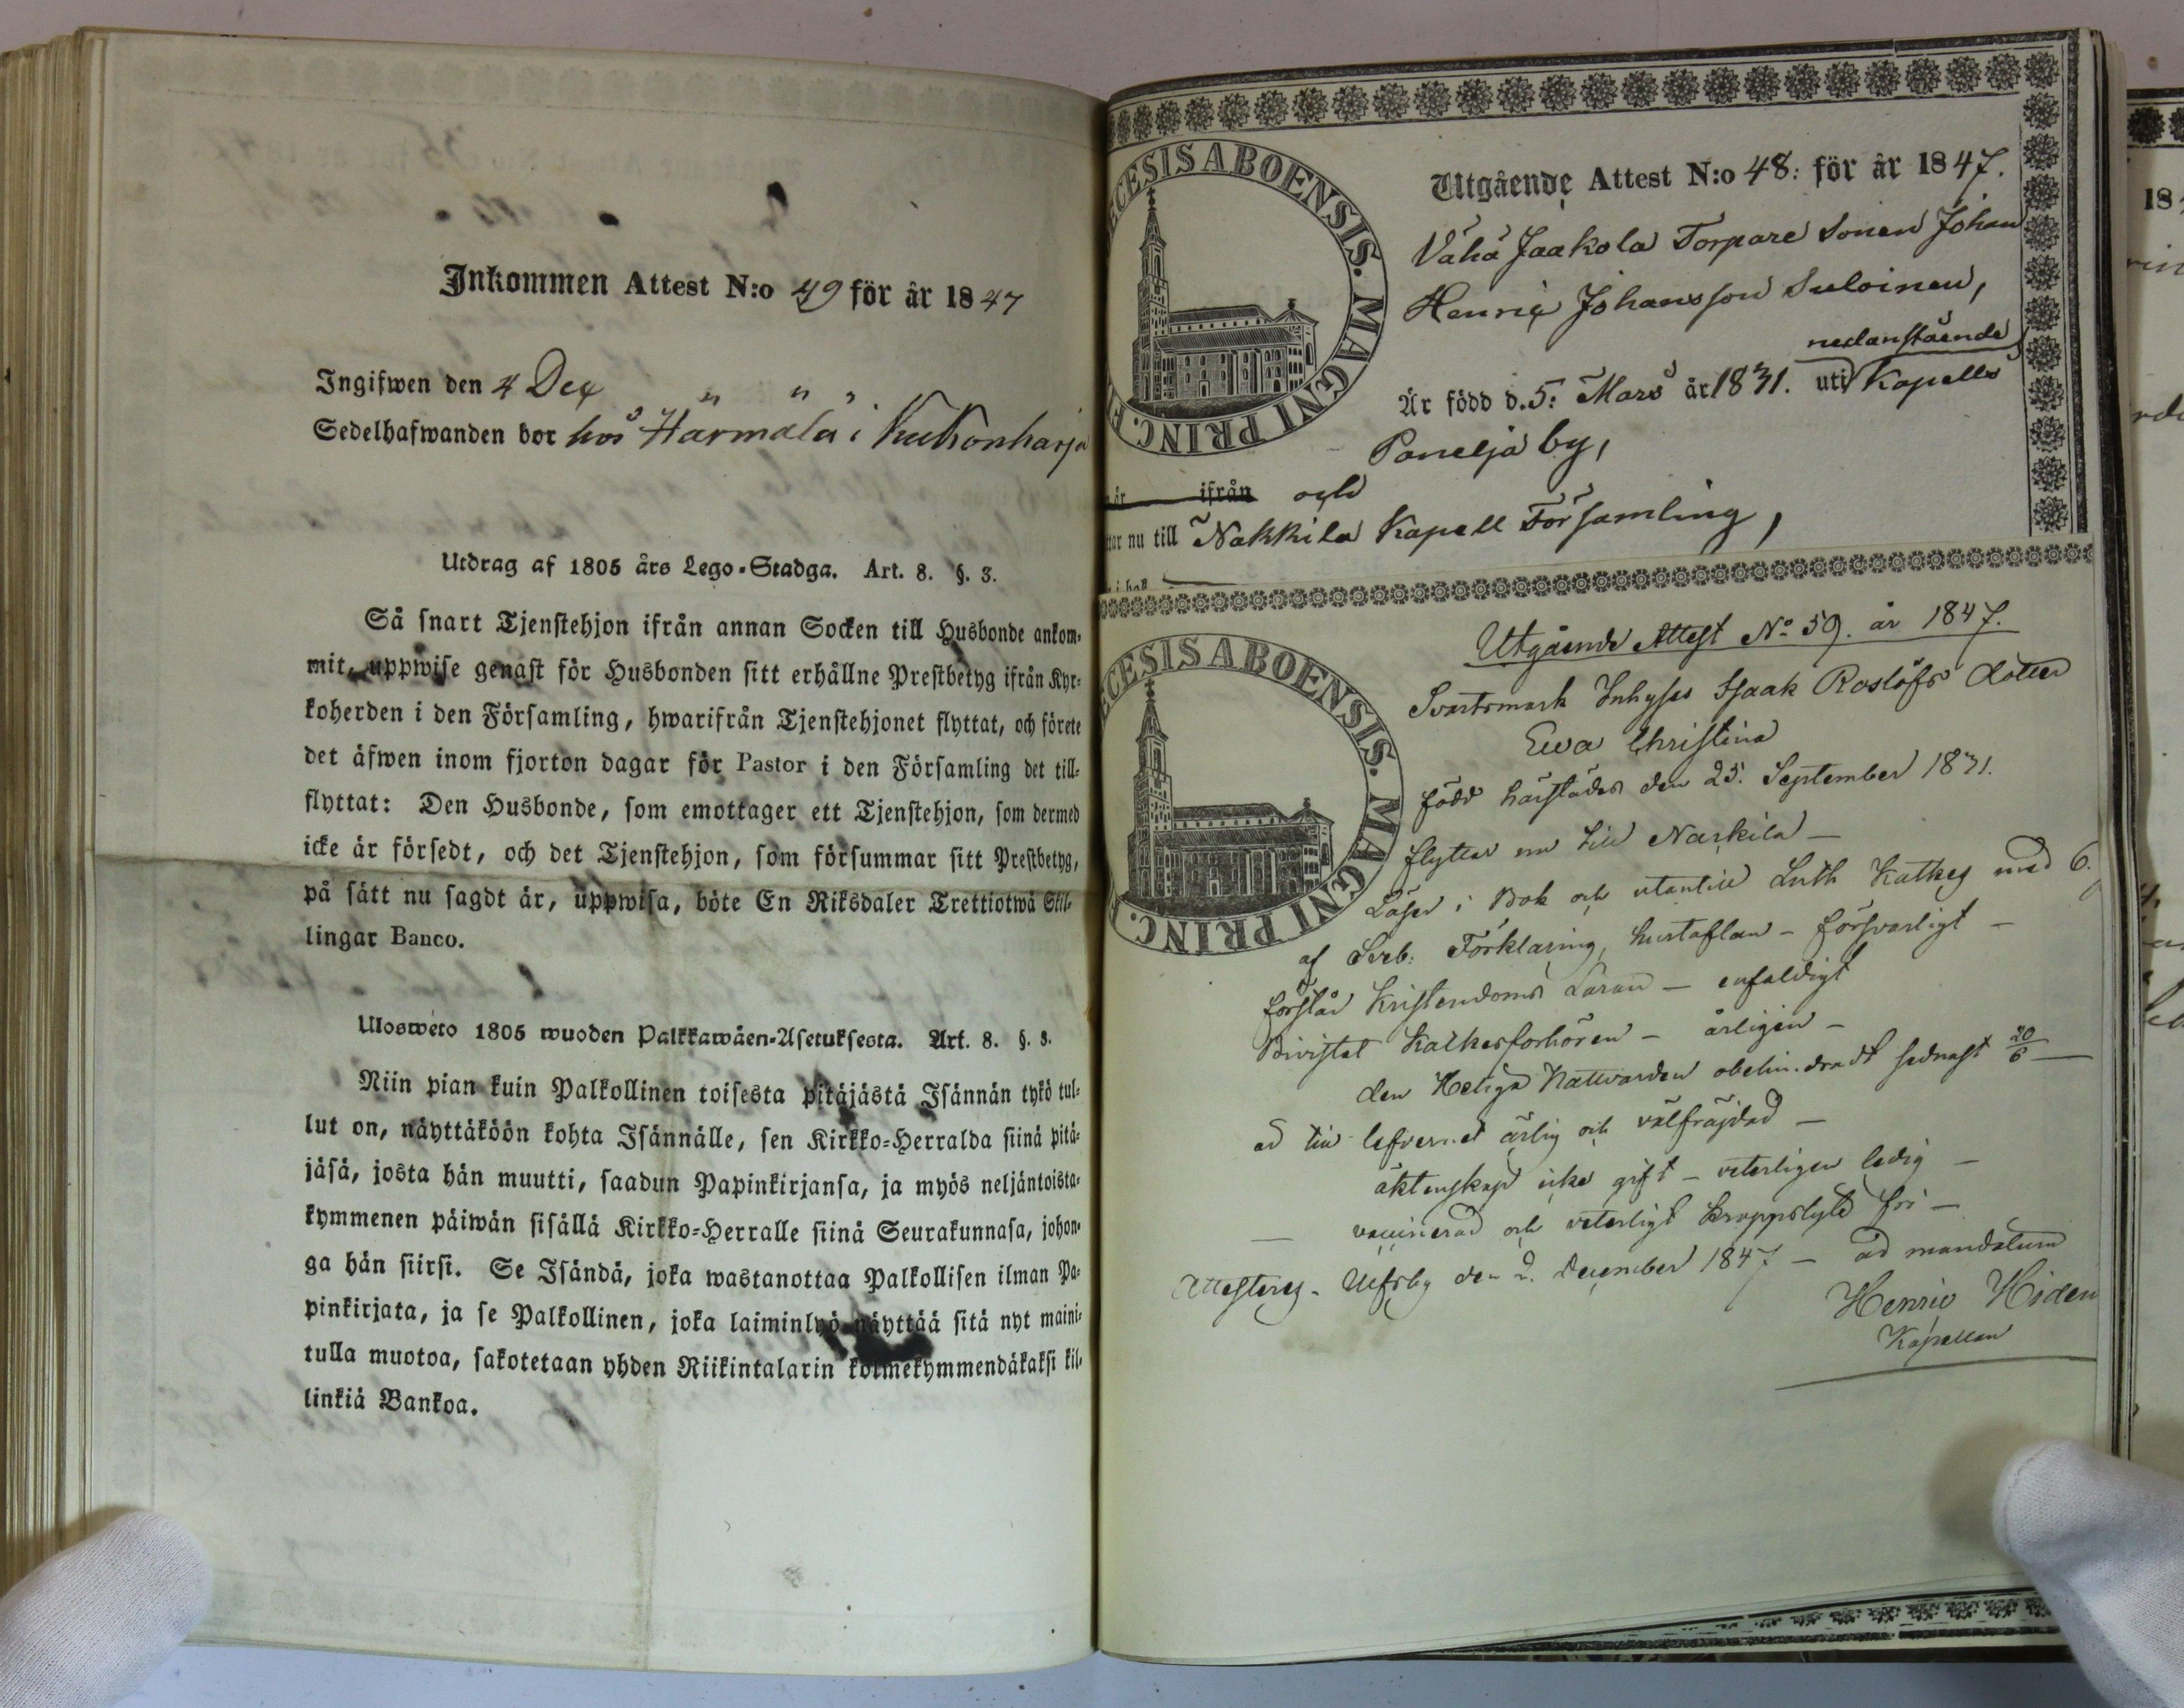 Inkommen Attest N:o 49 för år 1847
Ingifwen den 4 Dec
Sedelhafwanden bor hos Härmälä i Kukonharja
Utdrag af 1805 års Lego-Stadga. Art. 8. §. 3.
Så snart Tjenstehjon ifrån annan Socken till Husbonde ankom-
mit, uppwise genast för Husbonden sitt erhållne Prestbetyg ifrån Kyr-
koherden i den Församling, hwarifrån Tjenstehjonet flyttat, och förete
det äfwen inom fjorton dagar för Pastor i den Församling det till-
flyttat: Den Husbonde, som emottager ett Tjenstehjon, som dermed
icke är försedt, och det Tjenstehjon, som försummar sitt Prestbetyg,
på sätt nu sagdt är, uppwisa, böte En Riksdaler Trettiotwå Skil-
lingar Banco.
Uloswéto 1805 wuoden Palkkawäen-Asetuksesta. Art. 8. §. 3.
Niin pian kuin Palkollinen toisesta pitäjästä Isännän tykö tul-
lut on, näyttäköön kohta Isännälle, sen Kirkko-Herralda siinä pitä-
jäsä, josta hän muutti, saadun Papinkirjansa, ja myös neljäntoista-
kymmenen päiwän sisällä Kirkko-Herralle siinä Seurakunnasa, johon-
ga hän siirsi. Se Isändä, joka wastanottaa Palkollisen ilman Pa-
pinkirjata, ja se Palkollinen, joka laiminlyö näyttää sitä nyt maini-
tulla muotoa, sakotetaan yhden Riikintalarin kolmekymmendäkaksi kil-
linkiä Bankoa.
CESIS ABOENSIS. MAGNI PRINC. F
Utgående Attest N:o 48: för år 1847.
Vähä Jaakola Torpare Sonen Johan
Henric Johansson Suloinen,
nedanstående
Är född d. 5: Mars år 1831. uti Kapells
Panelja by,
år ifrån och
tar nu till Nakkila Kapell Församling,
i bok
CESIS ABOENSIS. MAGNI PRINC. F
Utgående Attest No 59. år 1847.
Svartsmark Inhyses Isaak Roslöfs dotter
Ewa Christina
född härstädes den 25. September 1831.
flyttar nu till Nackila –
Läser i Bok och utantill Luth Kathes med 6.
af Sveb: Förklaring, hustaflan – försvarligt –
förstår Kristendoms Läran – enfaldigt
Bivistat Katkesförhören – årligen –
den Heliga Nattvarden obehindradt sednast 20/6 –
ad till lefvernet ärlig och välfräjdad –
äktenskap icke gift – veterligen ledig –
– vaccinerad och veterligt kroppslyte fri –
Attesterez. Ulfsby den 2. December 1847 – ad mandatum
Henric Hiden
Kapellan
18